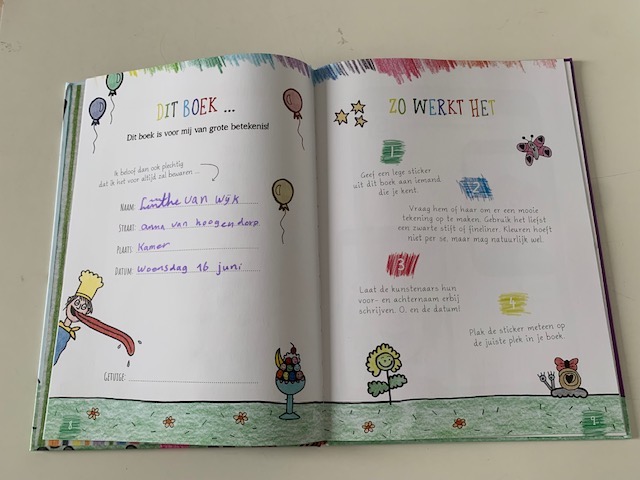 DIT BOEK ...
Dit boek is voor mij van grote betekenis!
Ik beloof dan ook plechtig
dat ik het voor altijd zal bewaren ...
NAAM: Linthe van Wijk
STRAAT: anna van hoogendorp
PLAATS: Kamer
DATUM: woensdag 16 juni
GETUIGE:
ZO WERKT HET
1
Geef een lege sticker
uit dit boek aan iemand
die je kent.
2
Vraag hem of haar om er een mooie
tekening op te maken. Gebruik het liefst
een zwarte stift of fineliner. Kleuren hoeft
niet per se, maar mag natuurlijk wel.
3
Laat de kunstenaars hun
voor- en achternaam erbij
schrijven. O, en de datum!
4
Plak de sticker meteen op
de juiste plek in je boek.